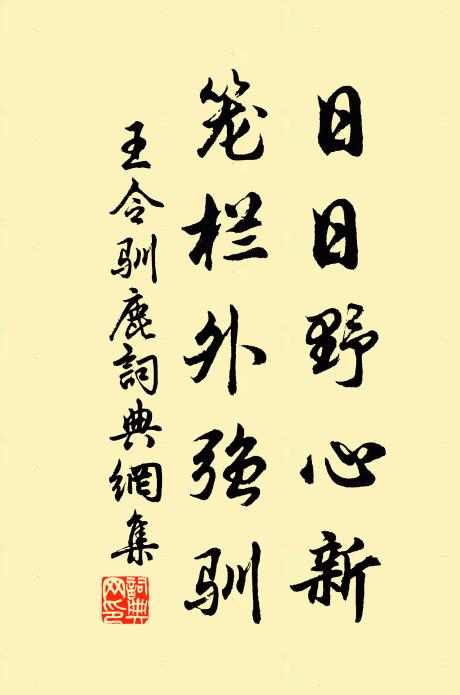 日日野心新
笼栏外强驯
王令驯鹿詞典網集
詞典网印